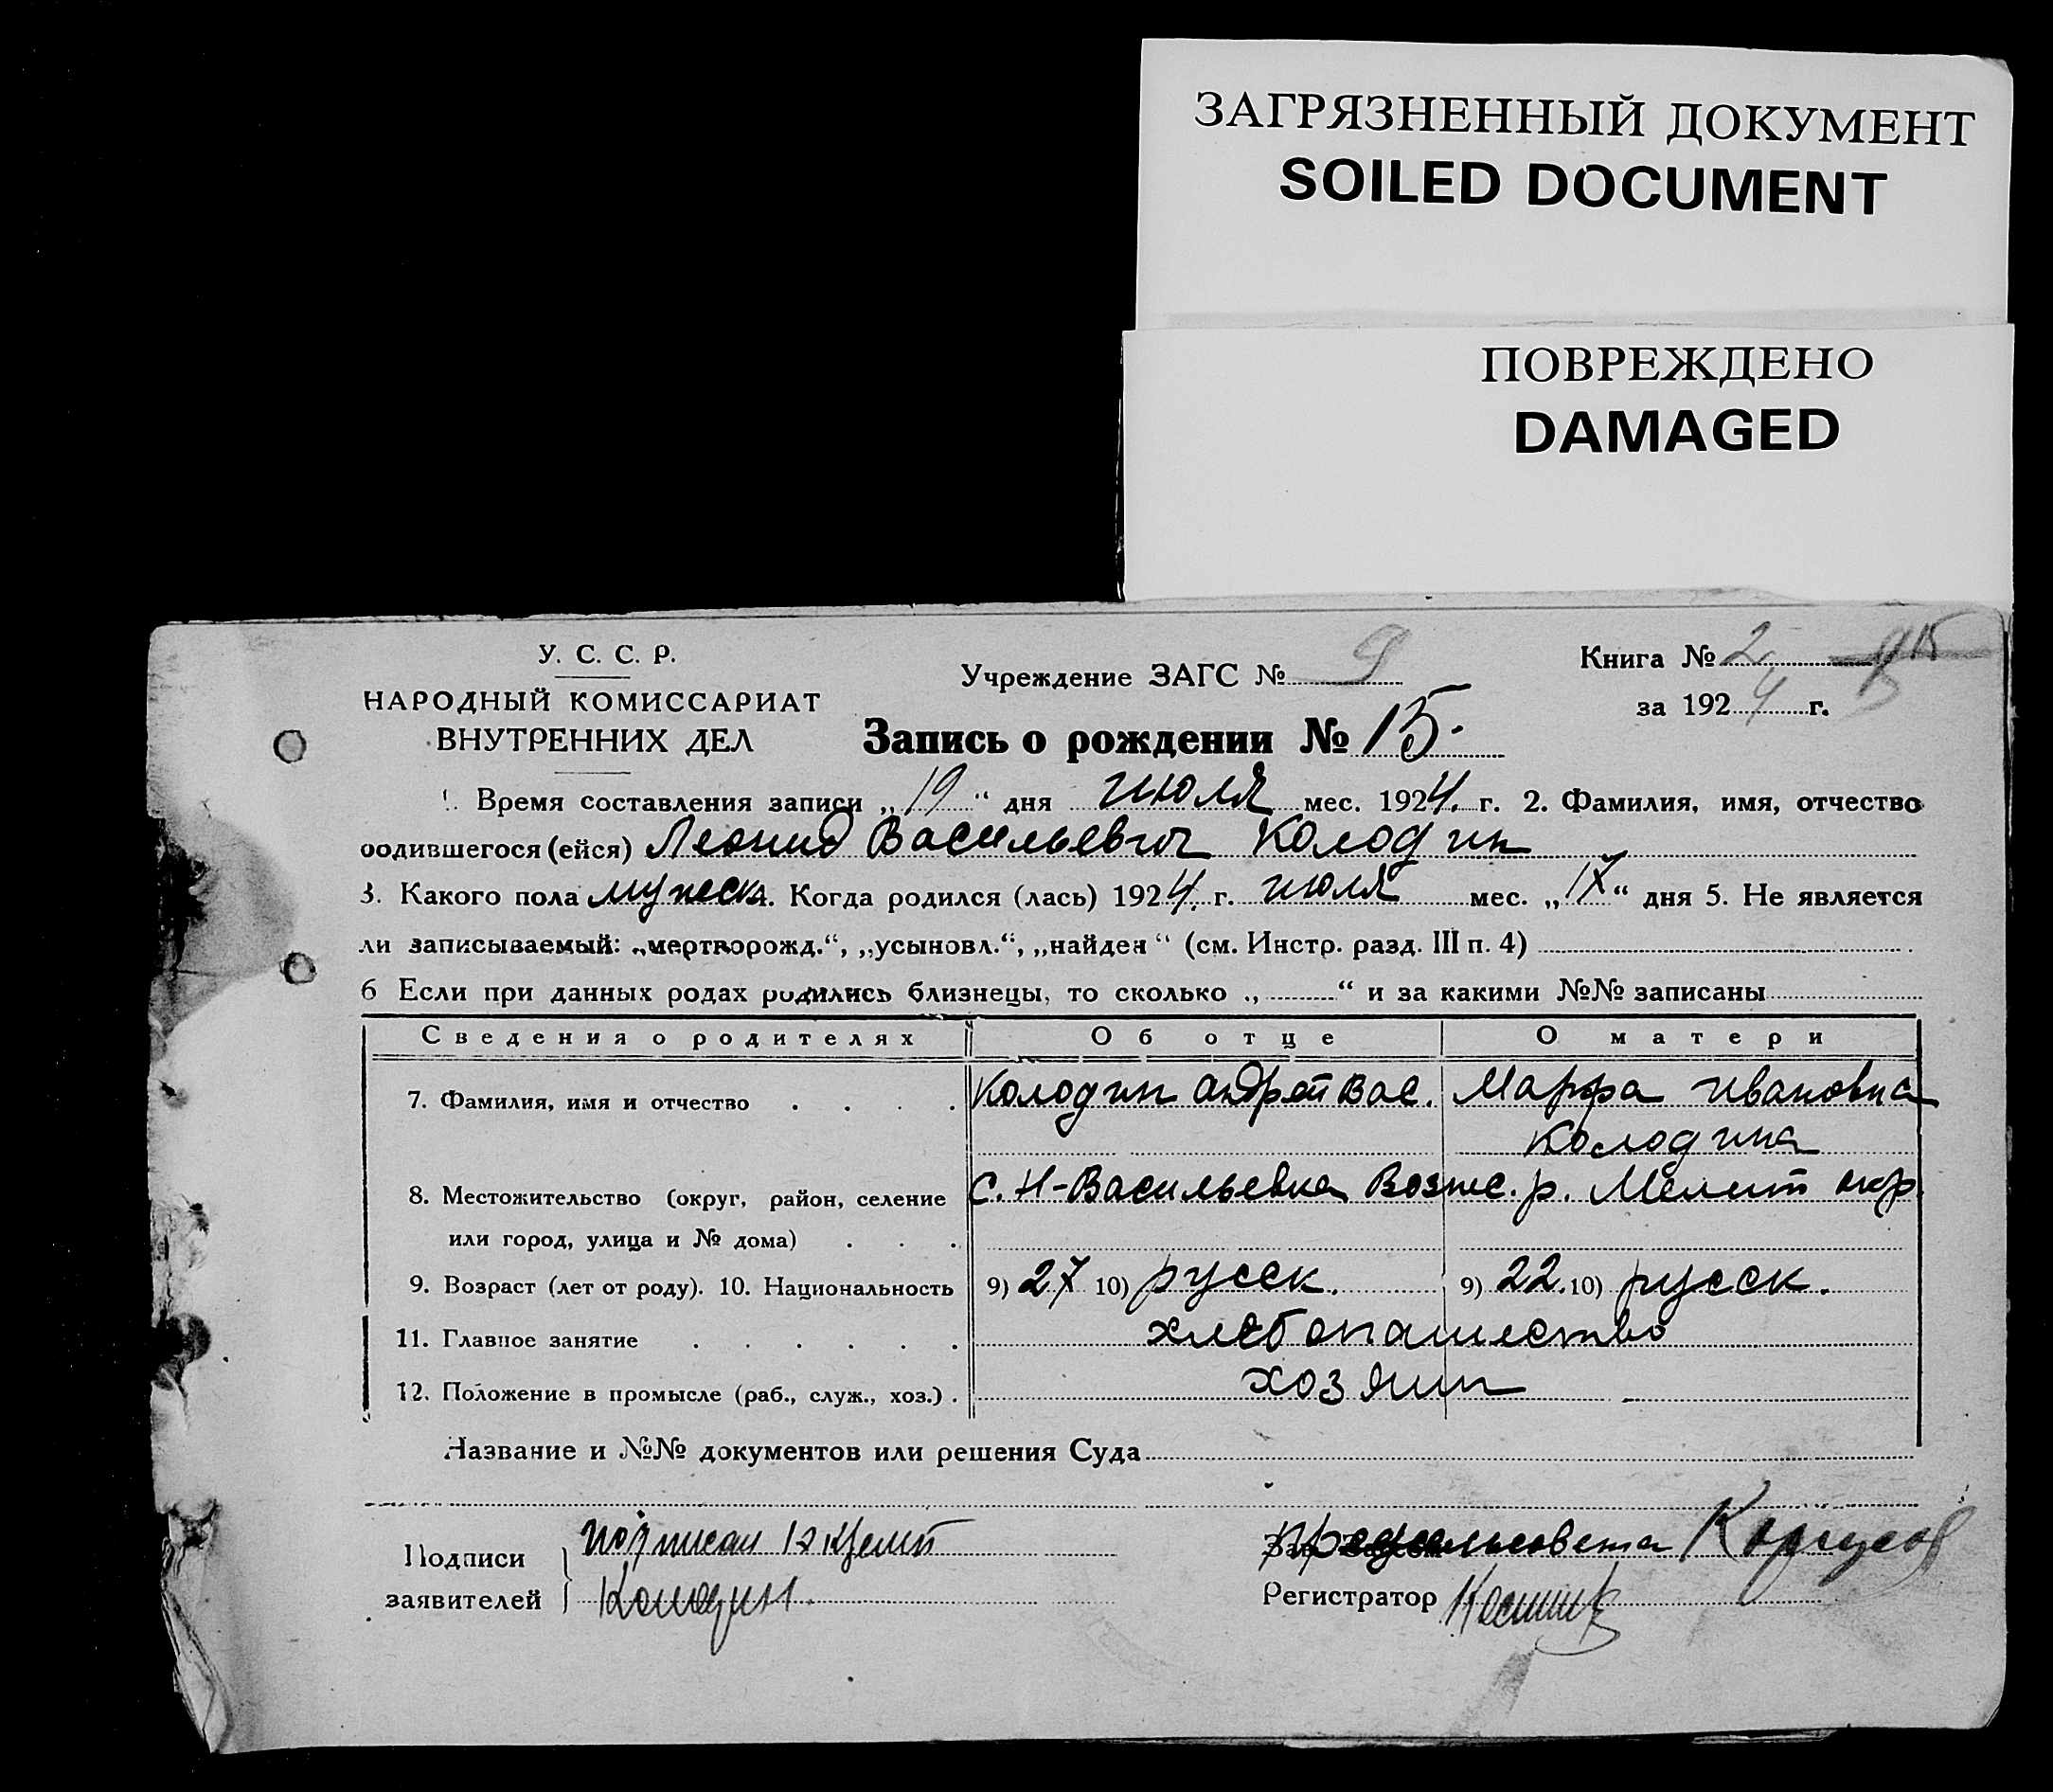 ЗАГРЯЗНЕННЫЙ ДОКУМЕНТ
SOILED DOCUMENT
ПОВРЕЖДЕНО
DAMAGED
У. С. С. Р.
НАРОДНЫЙ КОМИССАРИАТ
ВНУТРЕННИХ ДЕЛ
Учреждение ЗАГС № 9
Книга № 2
за 1924 г.
Запись о рождении № 15.
Время составления записи „19“ дня июля мес. 1924. г. 2. Фамилия, имя, отчество
родившегося (ейся) Леонид Васильевич Колодин
3. Какого пола мужеск. Когда родился (лась) 1924. г. июля мес. „17“ дня 5. Не является
ли записываемый: „мертворожд.“, „усыновл.“, „найден“ (см. Инстр. разд. III п. 4)
6 Если при данных родах родились близнецы, то сколько „ “ и за какими №№ записаны
Сведения о родителях Об отце О матери
7. Фамилия, имя и отчество Колодин Андрей Вас. Марфа Ивановна
Колодина
8. Местожительство (округ, район, селение С. Н-Васильевка Вознес. р. Мелит окр
или город, улица и № дома)
9. Возраст (лет от роду). 10. Национальность 9) 27 10) русск. 9) 22. 10) русск.
11. Главное занятие хлебопашество
12. Положение в промысле (раб., служ., хоз.) хозяин
Название и №№ документов или решения Суда
Подписи
заявителей Колодин
Предсельсовета
Регистратор